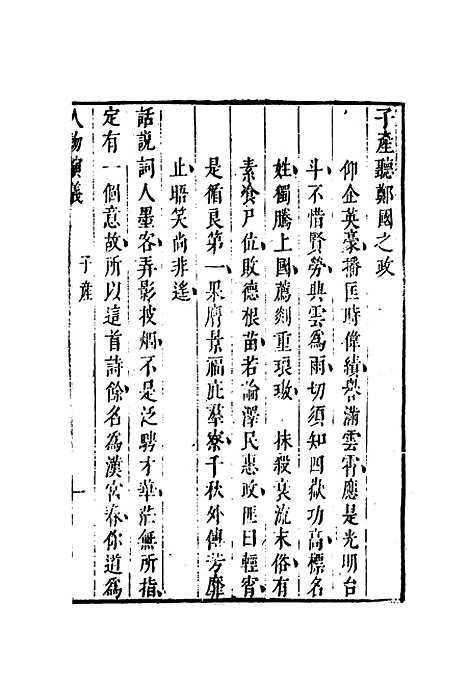 子產聽鄭國之政
仰企英豪播匡時偉績譽滿雲霄應是光明台
斗不惜賢勞與雲爲雨切須知四嶽功高標名
姓獨騰上國薦剡重琅璈　抹殺衰流末俗有
素飡尸位敗德根苗若論澤民惠政匪曰輕宵
是循良第一果膺景福庇羣寮千秋外傳芳靡
止晤笑尚非遙
話說詞人墨客弄影披烟不是泛騁才華茫無所指
定有一個意故所以這首詩餘名爲漢宮春你道爲
人物演義
子產
一